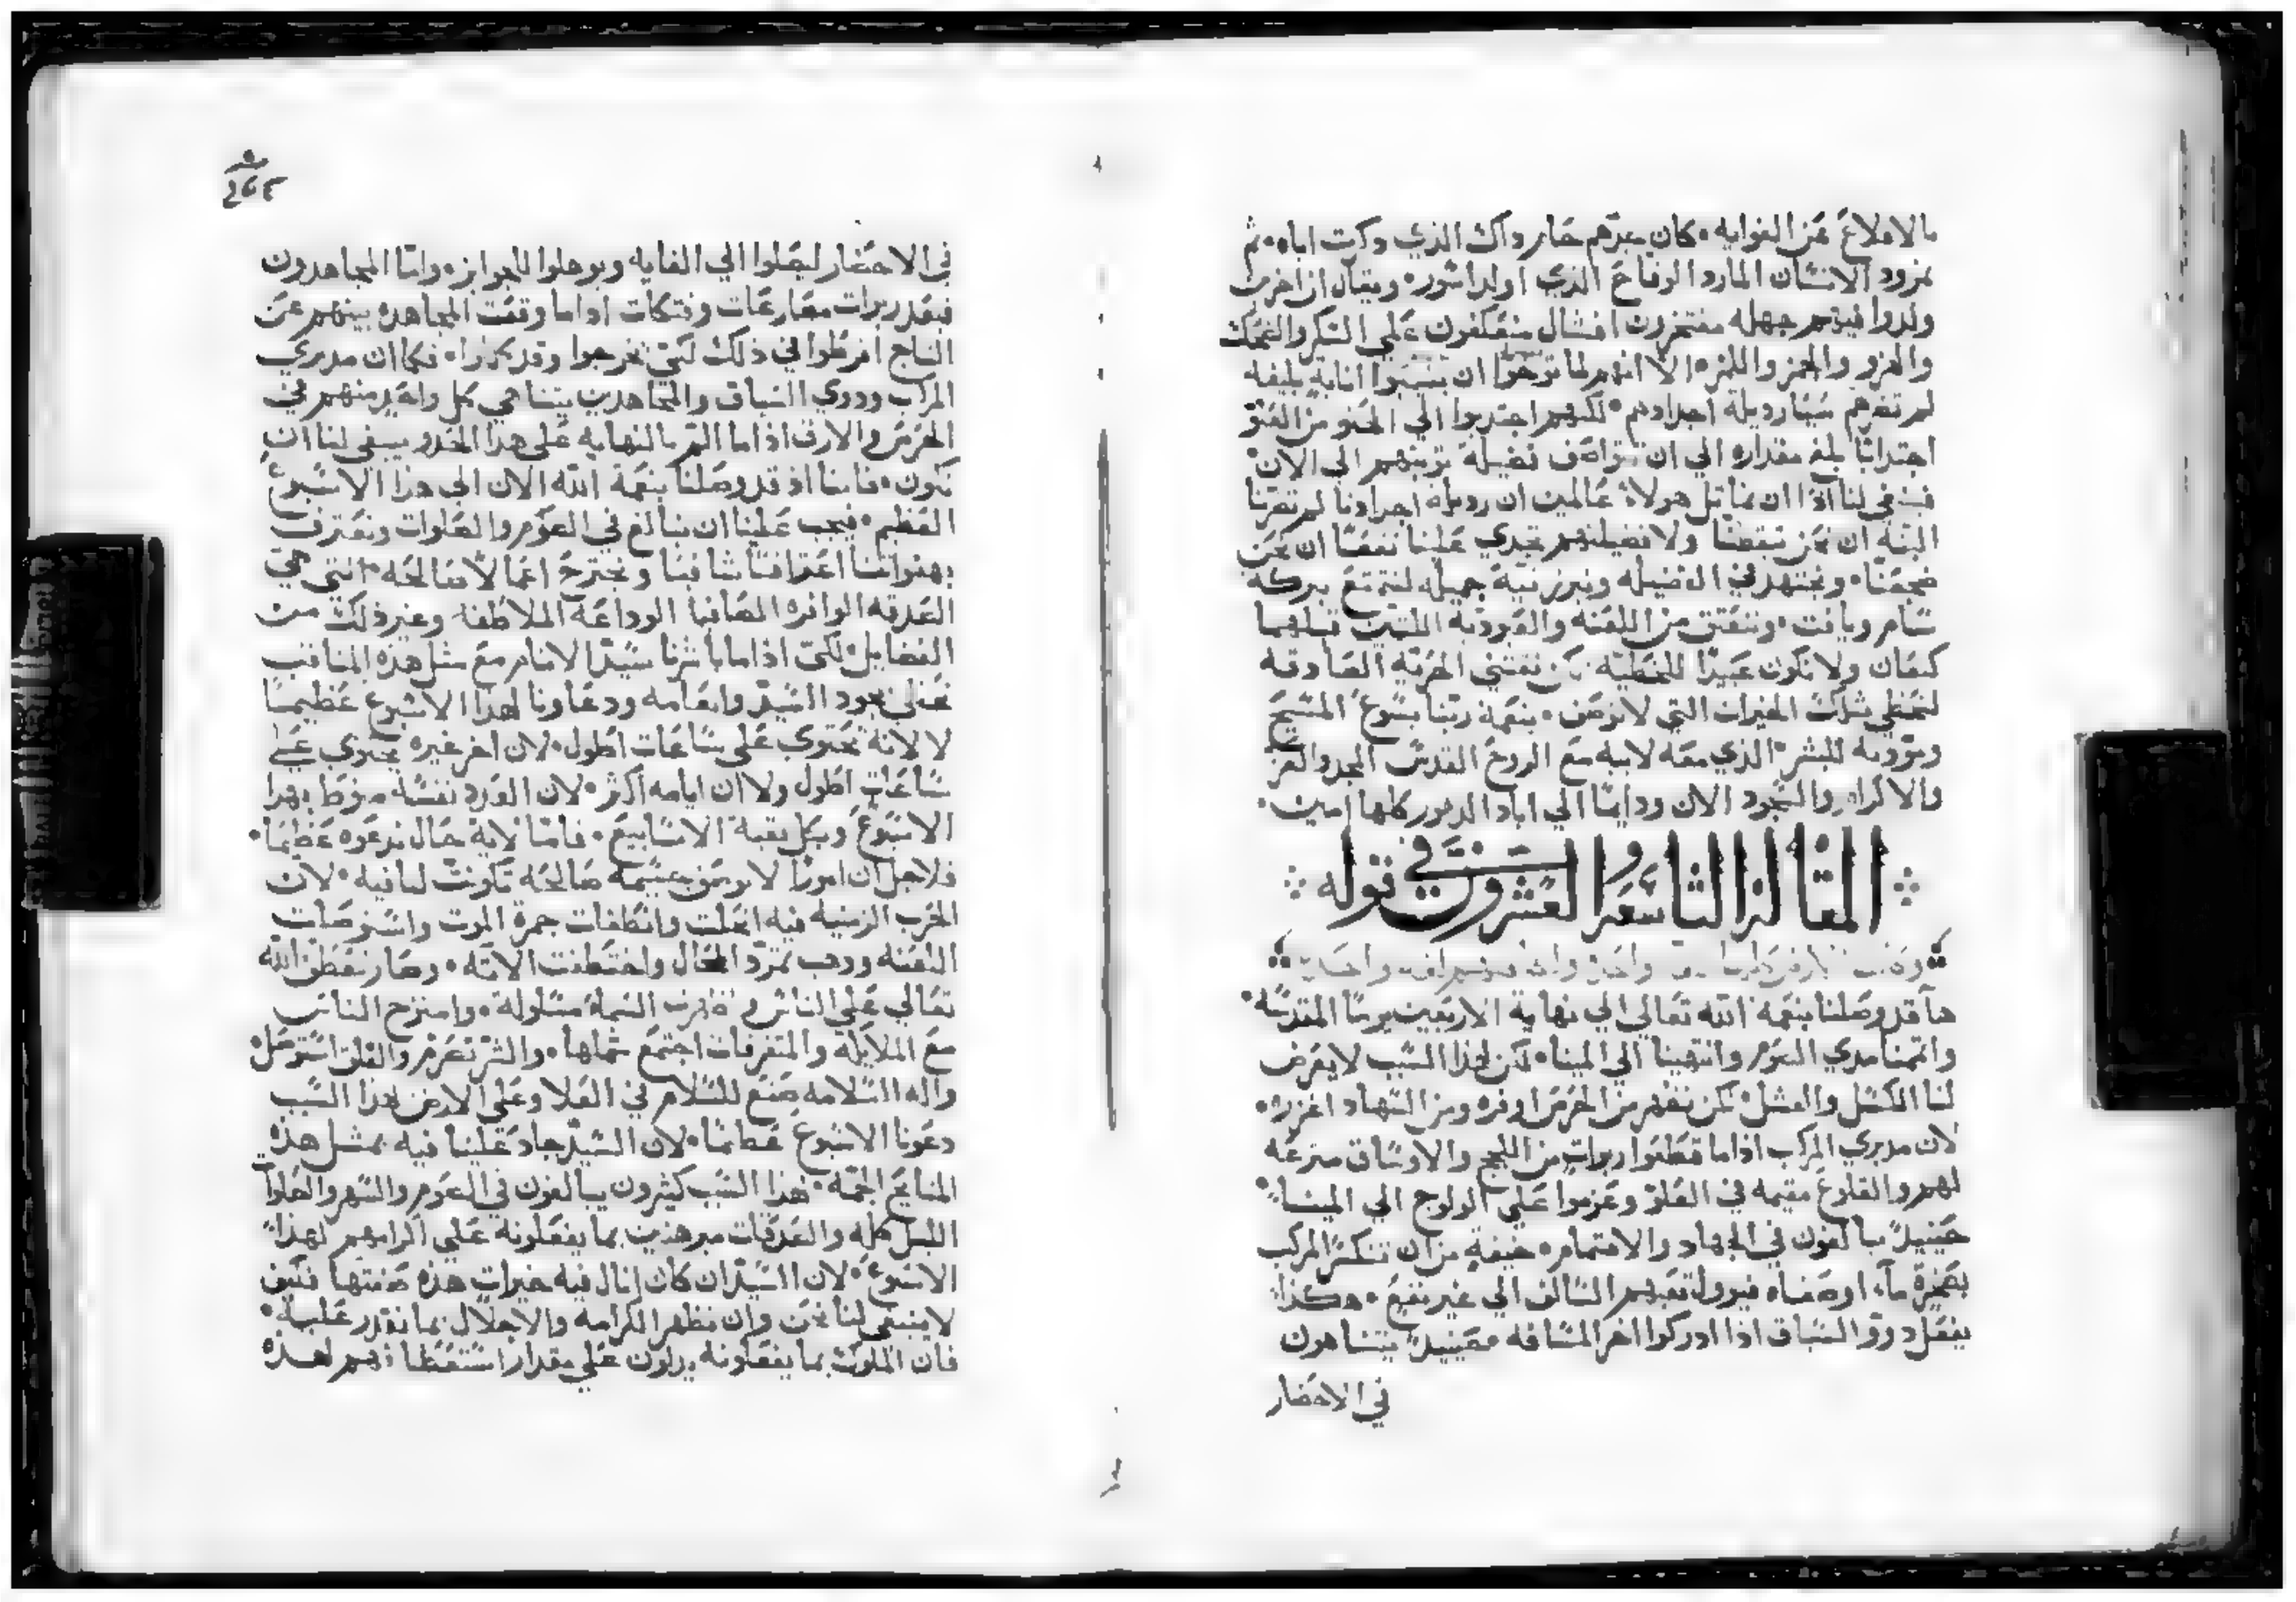 بالاقلاع عن الغوايه • كان جدهم حام وذاك الذي ذكرت اباه • ثم
نمرود الانسان المارد الوقاح الذي اولد اشور • ويقال ان اخرين
ولدوا فيهم جهله مفتخرون افشال منعكفون على السكر والضحك
والهزو والهمز واللمز • الا انهم لما توخوا ان ينيبوا انابة بليغه
لم تضرهم سيا رديلة اجدادهم • لكنهم اجتدبوا الي الحنو من الفتق
اجتدابا بلغ مقداره الي ان تواصف فضيلة تزينهم الي الان •
فينبغي لنا اذا ان نماثل هولاء عالمين ان رديله اجدادنا لم تضرنا
البتة ان نحن تيقظنا ولا فضيلتهم تجدي علينا نفعا ان نحن
ضجعنا • ونجتهد في الفضيله ونبرز نية جميله لنتمتع ببركة
سام ويافت • وننعتق من اللعنه والعبودية اللتين قبلهما
كنعان ولا نكون عبيدا للخطيه لكن نقتني الحريه الصادقه
لنحظي بتلك الخيرات التي لا توصف • بنعمة ربنا يسوع المسيح
وتودده للبشر الذي معه لابيه مع الروح القدس المجد والعز
والاكرام والسجود الان ودايما الي اباد الدهور كلها امين •
المقالة التاسعة والعشرون في قوله
وكانت الارض كلها واحده
ها قد وصلنا بنعمة الله تعالي الي نهاية الاربعين يوما المقدسه •
واتممنا مدي الصوم وانتهينا الي المينا • لكن لهذا السبب لا يعرض
لنا الكسل والفشل • لكن نظهر من الحرص اوفره ومن السهاد اغزره •
لان مدبري المركب اذا ما قطعوا ربوات من اللجج والاوساق مترعه
لهم والقلوع مقيمه في العلو وعزموا على الولوج الي المينا •
حينيذ يبالغون في الجهاد والاهتمام • خيفة من ان تنكسر المركب
بصخرة ماء او صفاه فيوول تعبهم السالف الي غير نفع • هكذا
يفعل ذوو السباق اذا ادركوا اخر المسافه فحينيذ يتناهون
في الاحضار
في الاحضار ليصلوا الي الغايه ويوهلوا للجوايز • واما المجاهدون
فبعد ربوات مصارعات وفتكات اذا ما وقعت المجاهده بينهم عن
التاج افرطوا في ذلك لكي يخرجوا وقد كرزوا • فكما ان مدبري
المركب وذوي السباق والمجاهدين يتناهي كل واحد منهم في
الحرص والارق اذا ما الم بالنهايه على هذا الحذو ينبغي لنا ان
نكون • فاننا اذ قد وصلنا بنعمة الله الان الي هذا الاسبوع
العظيم • فيجب علينا ان نبالغ في الصوم والصلوات ونعترف
بهفواتنا اعترافا شافيا ونجترح اعمالا صالحه • التي هي
الصدقه الوافره الصافيا الوداعه الملاطفه وغير ذلك من
الفضايل • لكي اذا ما باشرنا سيد الانام مع مثل هذه المناقب
نحظى بجود السيد وانعامه ودعاونا لهذا الاسبوع عظيما
لا لانه يحتوي على ساعات اطول • لان اخر غيره يحتوي على
ساعات اطول ولا ان ايامه اكثر • لان العدد نفسه منوط بهذا
الاسبوع وبكل بقية الاسابيع • فاما لاية حال ندعوه عظيما •
فلاجل ان امورا لا توصف عظيمة صالحه تكونت لنا فيه • لان
الحرب الزمنيه فيه انحلت وانطفات جمرة الموت واستوصلت
اللعنه وذهب تمرد المحال واختطفت الاته • وصار تعطف الله
تعالي على الناس وظهرت السماء مسلوكه • وامتزج الناس
مع الملايكه والمتفرقات اجتمع شملها • والشر تصرم والقلق استوصل
واله السلامه صنع للسلام في العلا وعلى الارض • لهذا السبب
دعونا الاسبوع عظيما • لان السيد جاد علينا فيه بمثل هذه
المنايح الجمه • لهذا السبب كثيرون يبالغون في الصوم والسهر والصلوات
الليل كله والصدقات مبرهنين بما يفعلونه على اكرامهم لهذا
الاسبوع • لان السيد ان كان انال فيه خيرات هذه صفتها فكيف
لا ينبغي لنا نحن وان نظهر الكرامه والاجلال بما نقدر عليه •
فان الملوك بما يفعلونه يدلون على مقدار استعظامهم لهذه